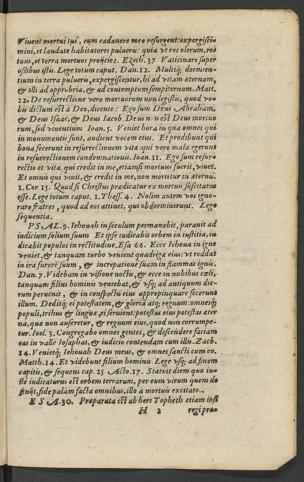 Vivent mortui tui, cum cadavere meo resurgent: expergisci
mini, et laudate habitatores pulveris: quia ut ros olerum, ros
tuus, et terra mortuos proiiciet. Ezech. 37. Vaticinare super
ossibus istis. Lege totum caput. Dan. 12. Multiq; dormien-
tium in terra pulveris, expergiscentur, hi ad vitam æternam,
& illi ad opprobria, & ad contemptum sempiternum. Matt.
22. De resurrectione vero mortuorum non legistis, quod vo-
bis dictum est à Deo, dicente: Ego sum Deus Abraham,
& Deus Isaac, & Deus Iacob. Deus non est Deus mortuo
rum, sed viventium. Ioan. 5. Veniet hora in qua omnes qui
in monumentis sunt, audient vocem eius, Et prodibunt qui
bona fecerunt in resurrectionem vitæ, qui vero mala egerunt
in resurrectionem condemnationis. Ioan. 11. Ego sum resur-
rectio et vita, qui credit in me, etiamsi mortuus fuerit, vivet.
Et omnis qui vivit, & credit in me, non morietur in æternū.
1. Cor. 15. Quod si Christus prædicatur ex mortuis suscitatus
esse. Lege totum caput. 1. Thess. 4. Nolim autem vos igno-
rare fratres, quod ad eos attinet, qui obdormierunt. Lege
sequentia.
PSAL. 9. Iehovah in seculum permanebit, paravit ad
iudicium solium suum Et ipse iudicabit orbem in iustitia, iu
dicabit populos in rectitudine. Esa 66. Ecce Iehova in igne
veniet, & tanquam turbo venient quadrigæ eius: ut reddat
in ira furorē suum, & increpationē suam in flammis ignis.
Dan. 7. Videbam in visione noctis, & ecce in nubibus cœli,
tanquam filius hominis veniebat, & usq; ad antiquum die-
rum pervenit, & in conspectu eius appropinquare fecerunt
illum. Deditq; ei potestatem, & gloriā atq; regnum: omnesq́;
populi, tribus & linguæ, ei servient: potestas eius potestas æter
na, quæ non auferetur, & regnum eius, quod non corrumpe-
tur. Ioel. 3. Congregabo omnes gentes, & descendere faciam
eas in valle Iosaphat, & iudicio contendam cum illis. Zach.
14. Venietq́; Iehovah Deus meus, & omnes sancti cum eo.
Matth. 24. Et videbunt filium hominis Lege usq; ad finem
capitis, & sequens cap. 25 Acto. 17. Statuit diem quo iu-
ste iudicaturus est orbem terrarum, per eum virum quem de
finijt, fide palàm facta omnibus, illo à mortuis excitato.
ESA. 30. Præparata est ab heri Topheth etiam ipsi
H 2 regi præ-